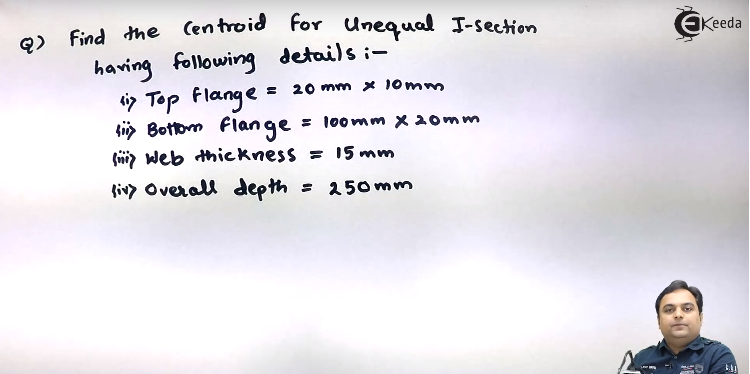 Q) Find the Centroid for Unequal I-section
having following details :-
(i) Top flange = 20 mm x 10mm
(ii) Bottom flange = 100mm x 20mm
(iii) Web thickness = 15 mm
(iv) Overall depth = 250mm
EKeeda